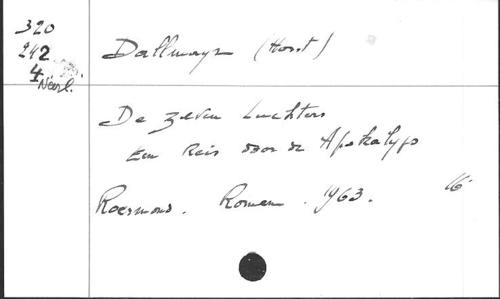 320
242
4
Néerl.
Dallmayr (Horst)
De zeven Luchters
Een Reis door de Apokalyps
Roermond. Romen. 1963. 16°